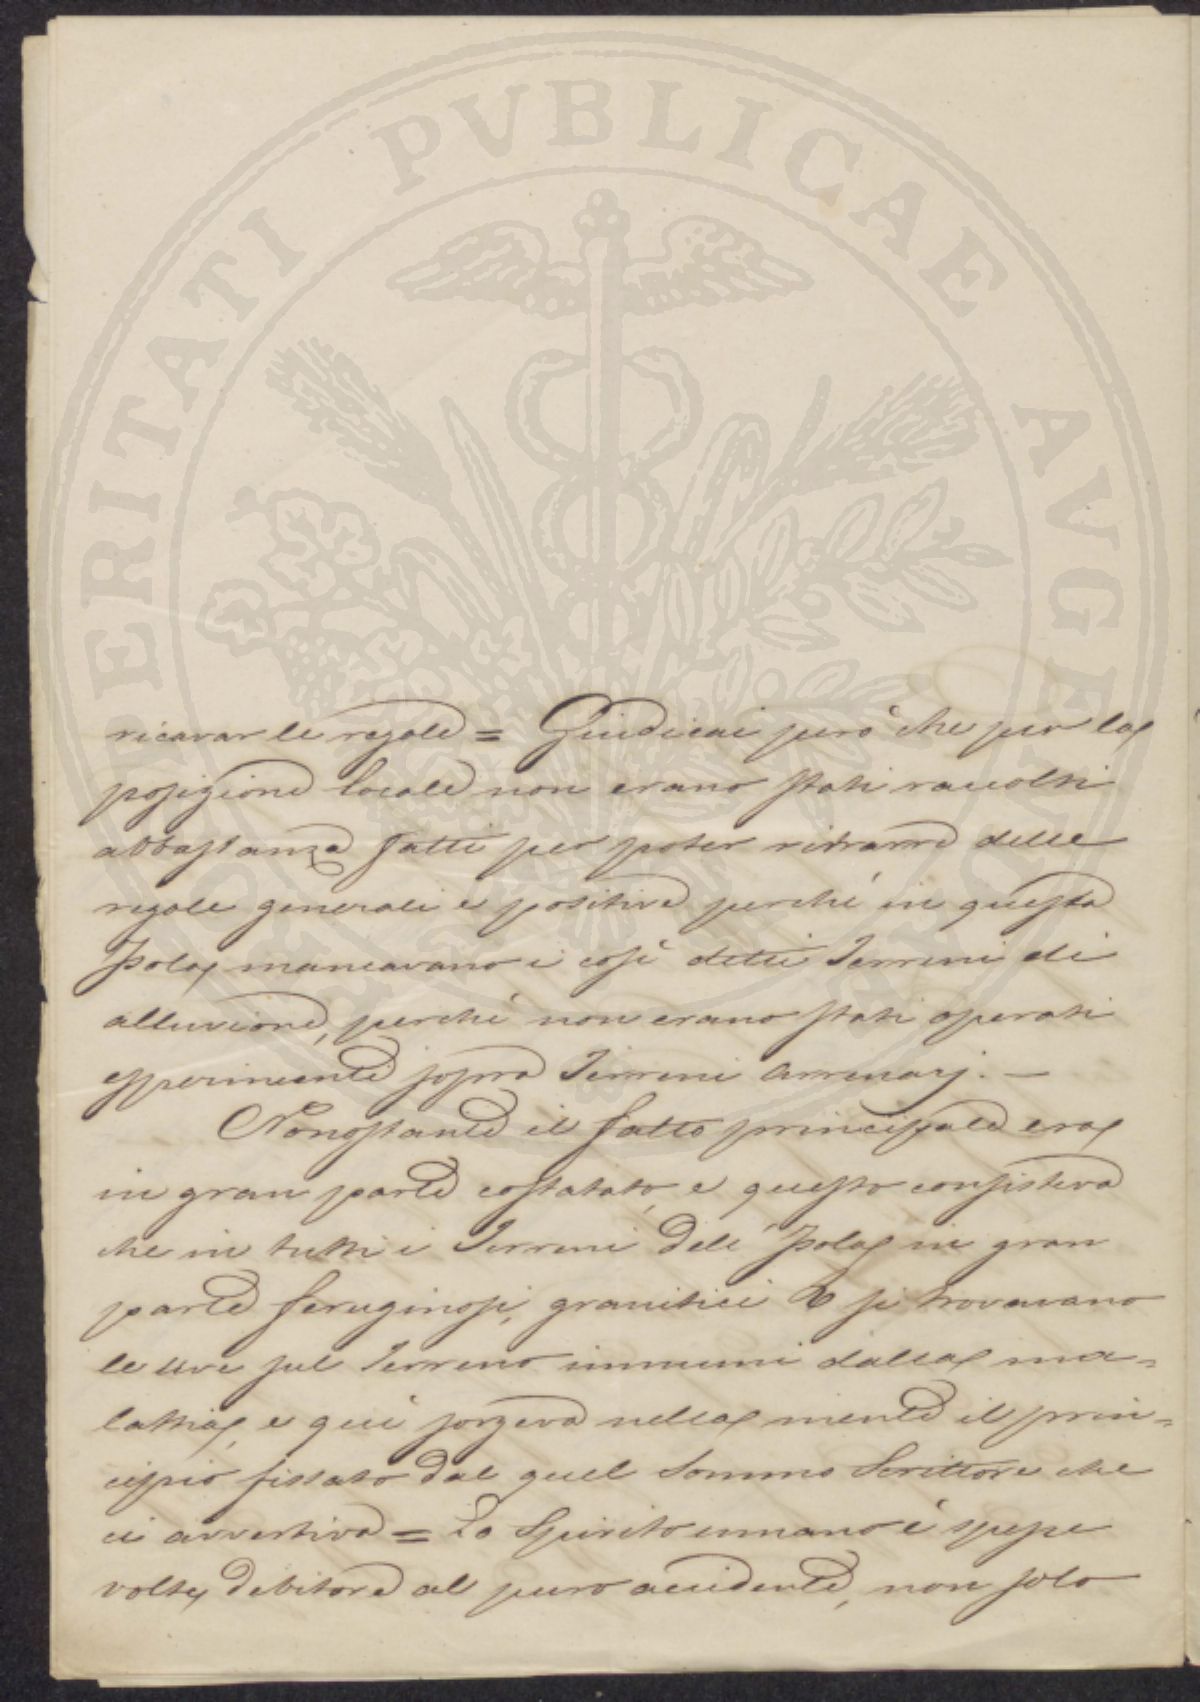 PROSPERITATI PVBLICAE AVGENDAE
ricavar le regole = Giudicai però che per la
posizione locale non erano stati raccolti
abbastanza fatti per poter ritrarre delle
regole generali e positive perché in questa
Isola mancavano i così detti Terreni di
alluvione, perché non erano stati operati
esperimenti sopra Terreni Arrenarj. —
Nonostante il fatto principale era
in gran parte costatato, e questo consisteva
che in tutti i Terreni dell' Isola in gran
parte feruginosi, granitici & si trovavano
le uve sul Terreno immuni dalla ma-
lattia, e quì sorgeva nella mente il prin-
cipio fissato dal quel Sommo Scrittore che
ci avvertiva = Lo Spirito umano è spesse
volte debitore al puro accidente, non solo